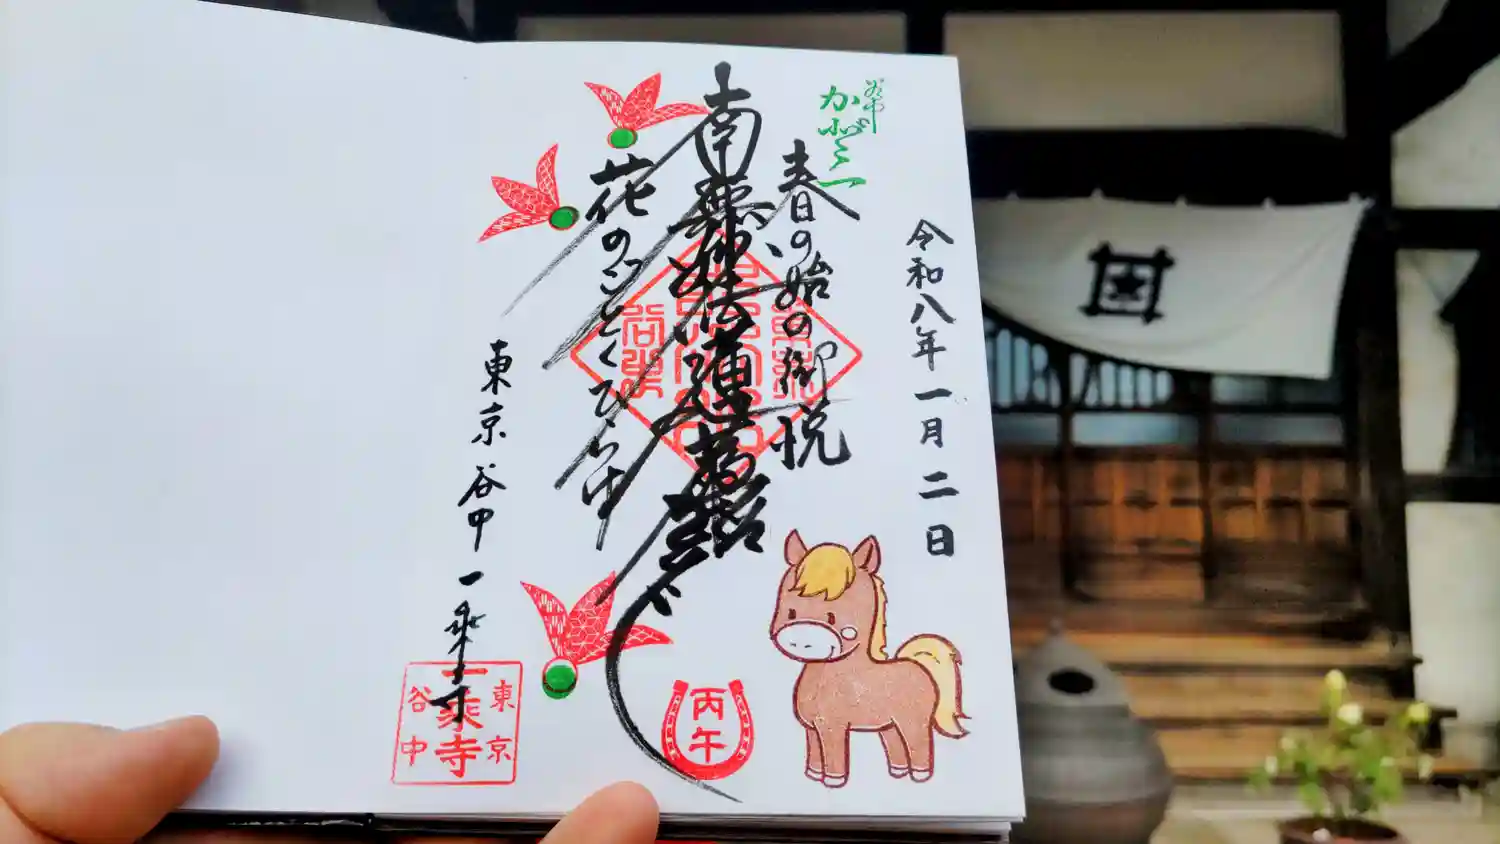 谷中
かどミ
令和八年一月二日
春の始の御悦
南無妙法蓮華経
花のごとくひらけ
東京谷中
一乗寺
東京
一乗寺
谷中
丙午